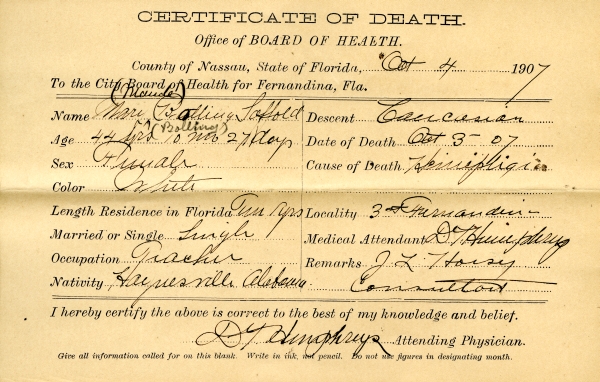 CERTIFICATE OF DEATH.
Office of BOARD OF HEALTH.
County of Nassau, State of Florida, Oct 4 1907
To the City Board of Health for Fernandina, Fla.
(Maude)
Name Mary Bolling Saffold
(Bolling)
Age 44 yrs 10 mo 27 days
Sex Female
Color White
Length Residence in Florida Ten yrs
Married or Single Single
Occupation Teacher
Nativity Haynesville Alabama
Descent Caucasian
Date of Death Oct 3-07
Cause of Death Hemiplegia
Locality 3rd Fernandina
Medical Attendant D. Humphreys
Remarks J L Horsey
Consultant
I hereby certify the above is correct to the best of my knowledge and belief.
Humphreys Attending Physician.
Give all information called for on this blank. Write in ink, not pencil. Do not use figures in designating month.